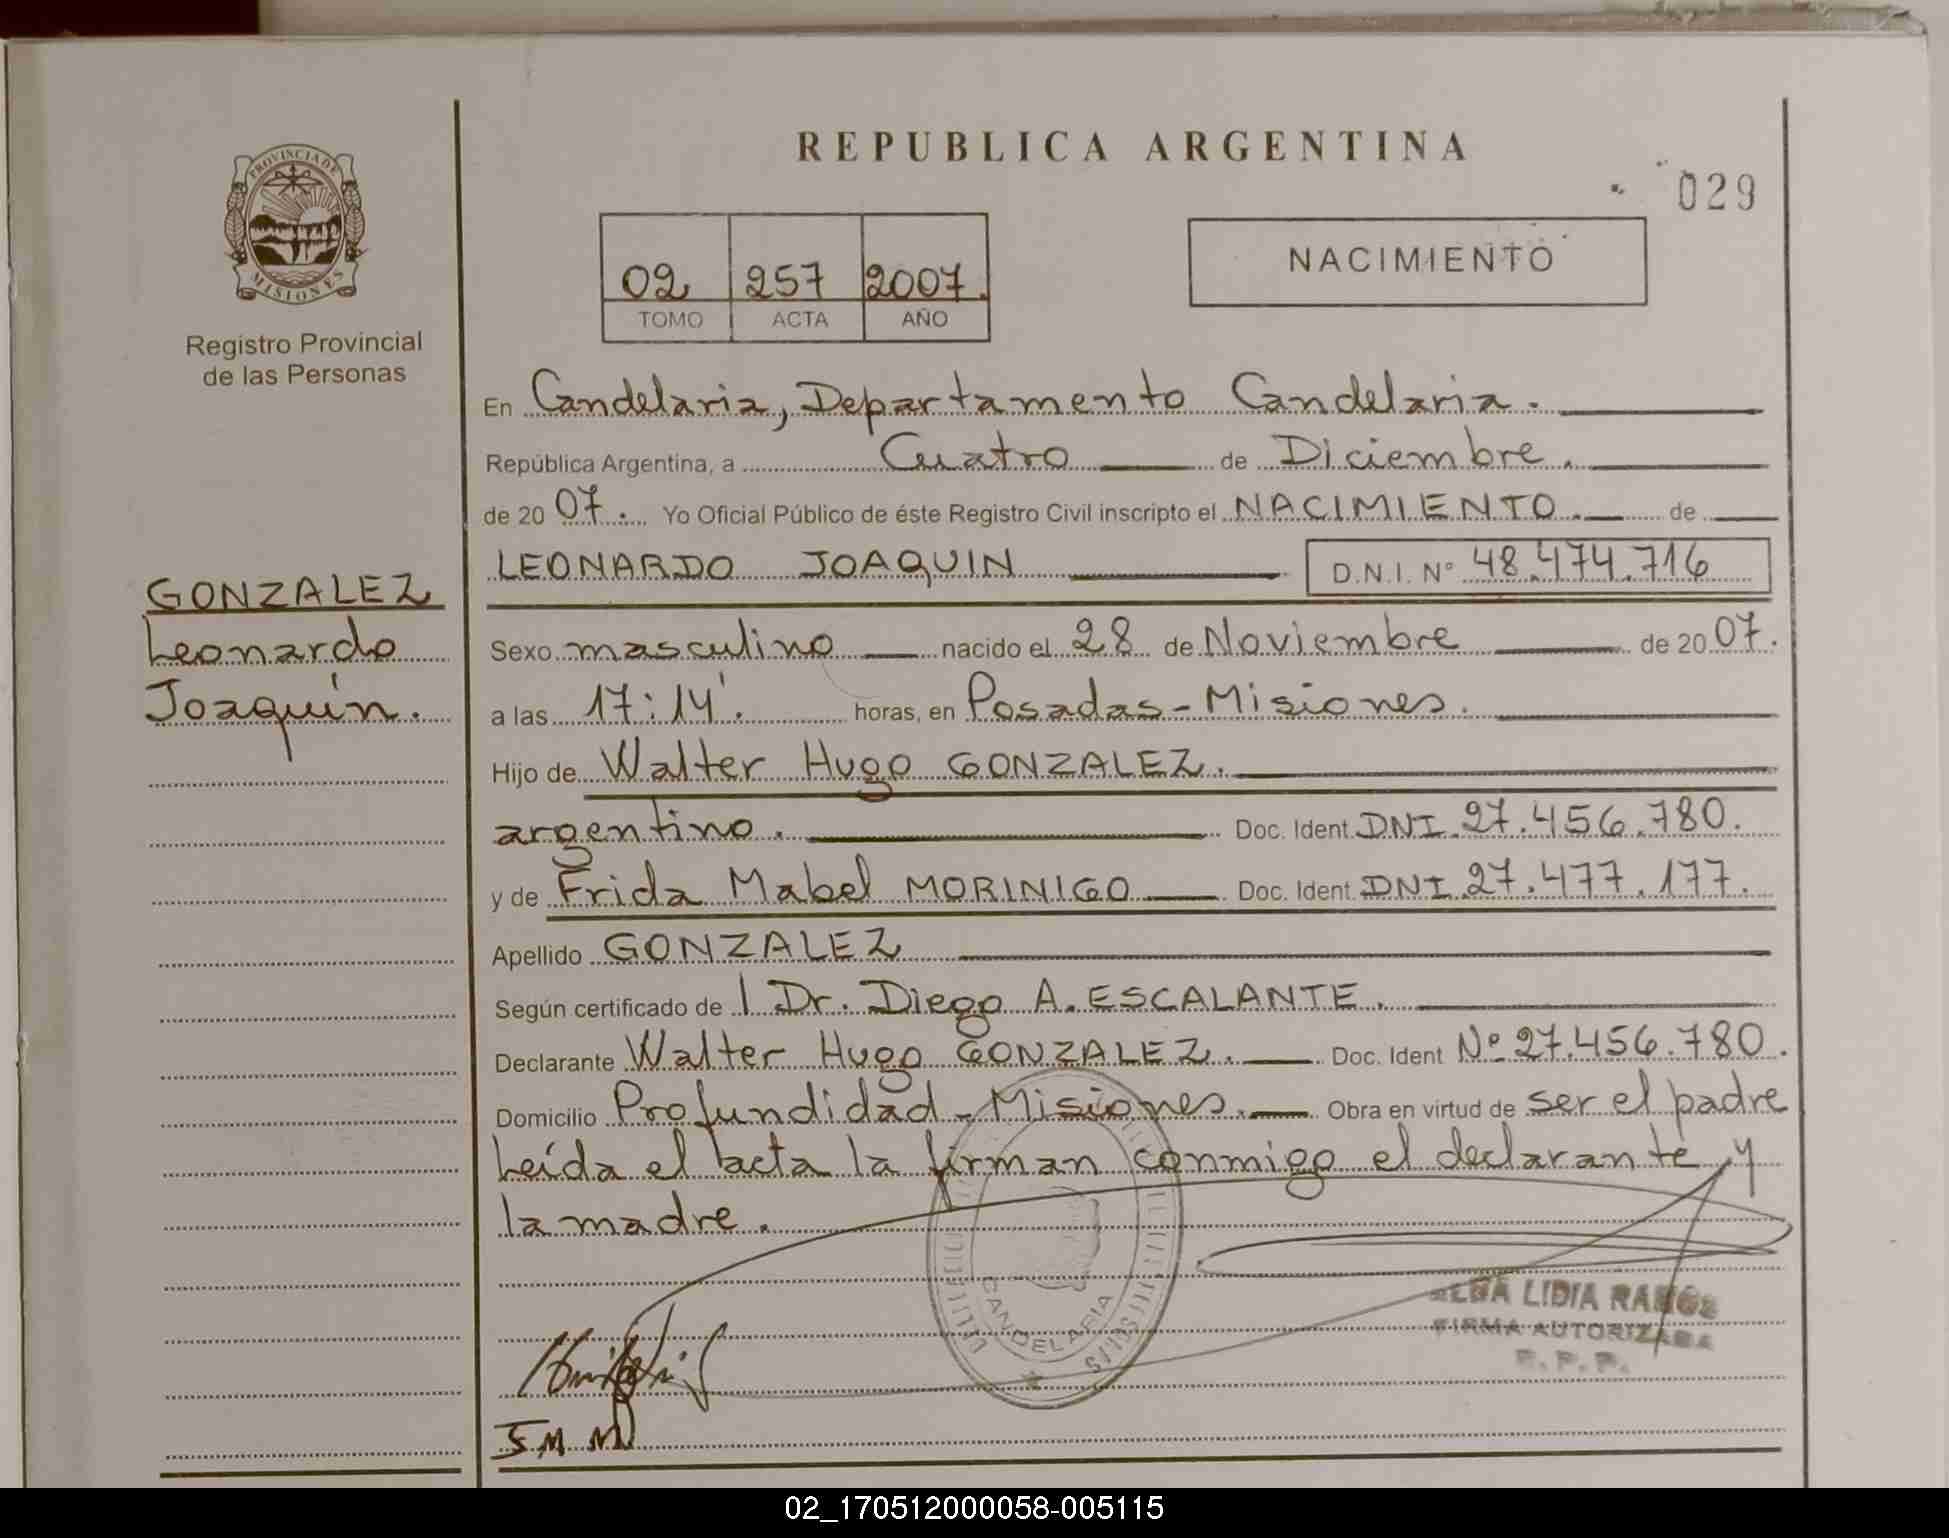 PROVINCIA DE
MISIONES
Registro Provincial
de las Personas
GONZALEZ
Leonardo
Joaquín.
REPUBLICA ARGENTINA
029
02 257 2007.
TOMO ACTA AÑO
NACIMIENTO
En Candelaria, Departamento Candelaria.
República Argentina, a Cuatro de Diciembre.
de 20 07. Yo Oficial Público de éste Registro Civil inscripto el NACIMIENTO. de
LEONARDO JOAQUIN D.N.I. N° 48.474.716
Sexo masculino nacido el 28 de Noviembre de 20 07.
a las 17:14'. horas, en Posadas-Misiones.
Hijo de Walter Hugo GONZALEZ.
argentino. Doc. Ident. DNI. 27.456.780.
y de Frida Mabel MORINIGO Doc. Ident. DNI. 27.477.177.
Apellido GONZALEZ
Según certificado de l Dr. Diego A. ESCALANTE.
Declarante Walter Hugo GONZALEZ. Doc. Ident N° 27.456.780.
Domicilio Profundidad - Misiones. Obra en virtud de ser el padre
Leída el acta la firman conmigo el declarante y
la madre.
CANDELARIA
LIDIA RAMOS
FIRMA AUTORIZADA
R.P.P.
02_170512000058-005115